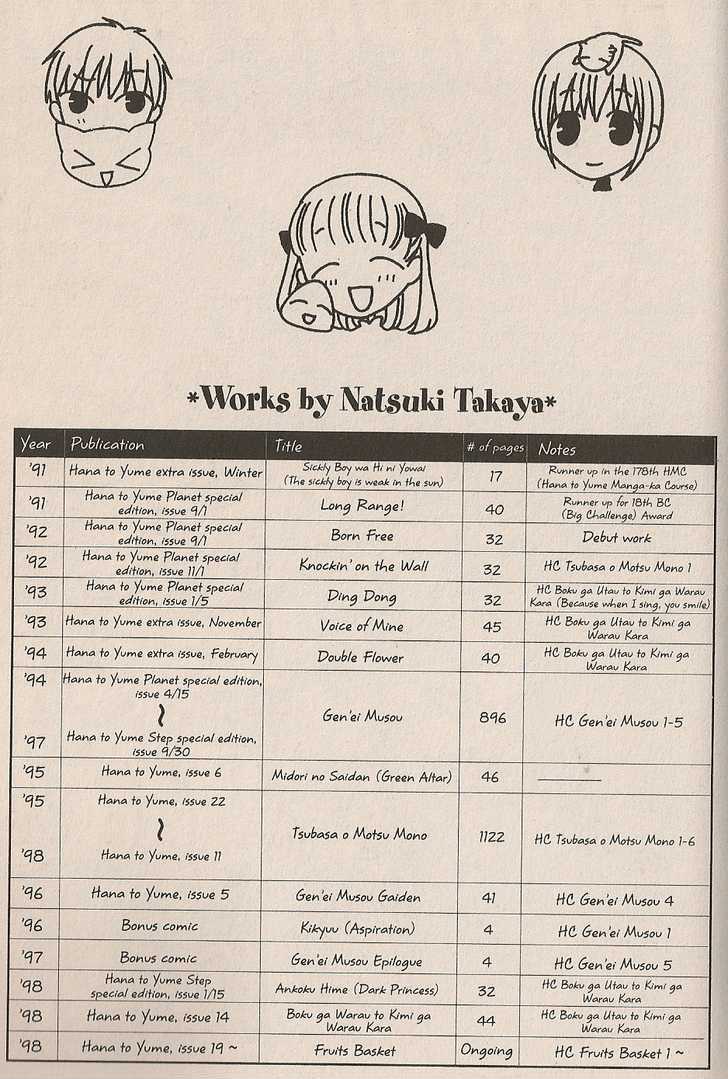 *Works by Natsuki Takaya*
Year Publication Title # of pages Notes
'91 Hana to Yume extra issue, Winter Sickly Boy wa Hi ni Yowai (The sickly boy is weak in the sun) 17 Runner up in the 178th HMC (Hana to Yume Manga-ka Course)
'91 Hana to Yume Planet special edition, issue 9/1 Long Range! 40 Runner up for 18th BC (Big Challenge) Award
'92 Hana to Yume Planet special edition, issue 9/1 Born Free 32 Debut work
'92 Hana to Yume Planet special edition, issue 11/1 Knockin' on the Wall 32 HC Tsubasa o Motsu Mono 1
'93 Hana to Yume Planet special edition, issue 1/5 Ding Dong 32 HC Boku ga Utau to Kimi ga Warau Kara (Because when I sing, you smile)
'93 Hana to Yume extra issue, November Voice of Mine 45 HC Boku ga Utau to Kimi ga Warau Kara
'94 Hana to Yume extra issue, February Double Flower 40 HC Boku ga Utau to Kimi ga Warau Kara
'94 Hana to Yume Planet special edition, issue 4/15
~ Gen'ei Musou 896 HC Gen'ei Musou 1-5
'97 Hana to Yume Step special edition, issue 9/30
'95 Hana to Yume, issue 6 Midori no Saidan (Green Altar) 46 ————
'95 Hana to Yume, issue 22
~ Tsubasa o Motsu Mono 1122 HC Tsubasa o Motsu Mono 1-6
'98 Hana to Yume, issue 11
'96 Hana to Yume, issue 5 Gen'ei Musou Gaiden 41 HC Gen'ei Musou 4
'96 Bonus comic Kikyuu (Aspiration) 4 HC Gen'ei Musou 1
'97 Bonus comic Gen'ei Musou Epilogue 4 HC Gen'ei Musou 5
'98 Hana to Yume Step special edition, issue 1/15 Ankoku Hime (Dark Princess) 32 HC Boku ga Utau to Kimi ga Warau Kara
'98 Hana to Yume, issue 14 Boku ga Warau to Kimi ga Warau Kara 44 HC Boku ga Utau to Kimi ga Warau Kara
'98 Hana to Yume, issue 19 ~ Fruits Basket Ongoing HC Fruits Basket 1 ~